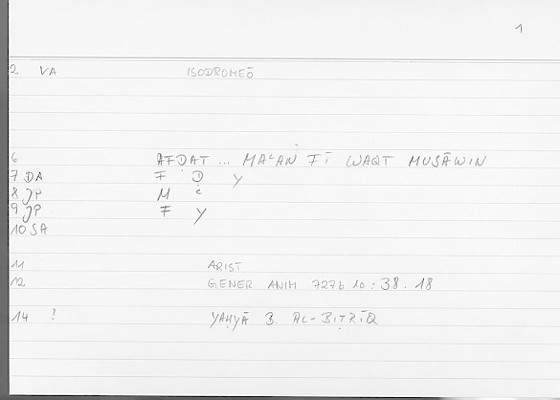 1
2 VA ISODROMEŌ
6 AFḌAT ... MAʿAN FĪ WAQT MUSĀWIN
7 DA F Ḍ Y
8 JP M ʿ
9 JP F Y
10 SA
11 ARIST
12 GENER ANIM 727b 10 : 38.18
14 ! YAḤYĀ B. AL-BIṬRĪQ